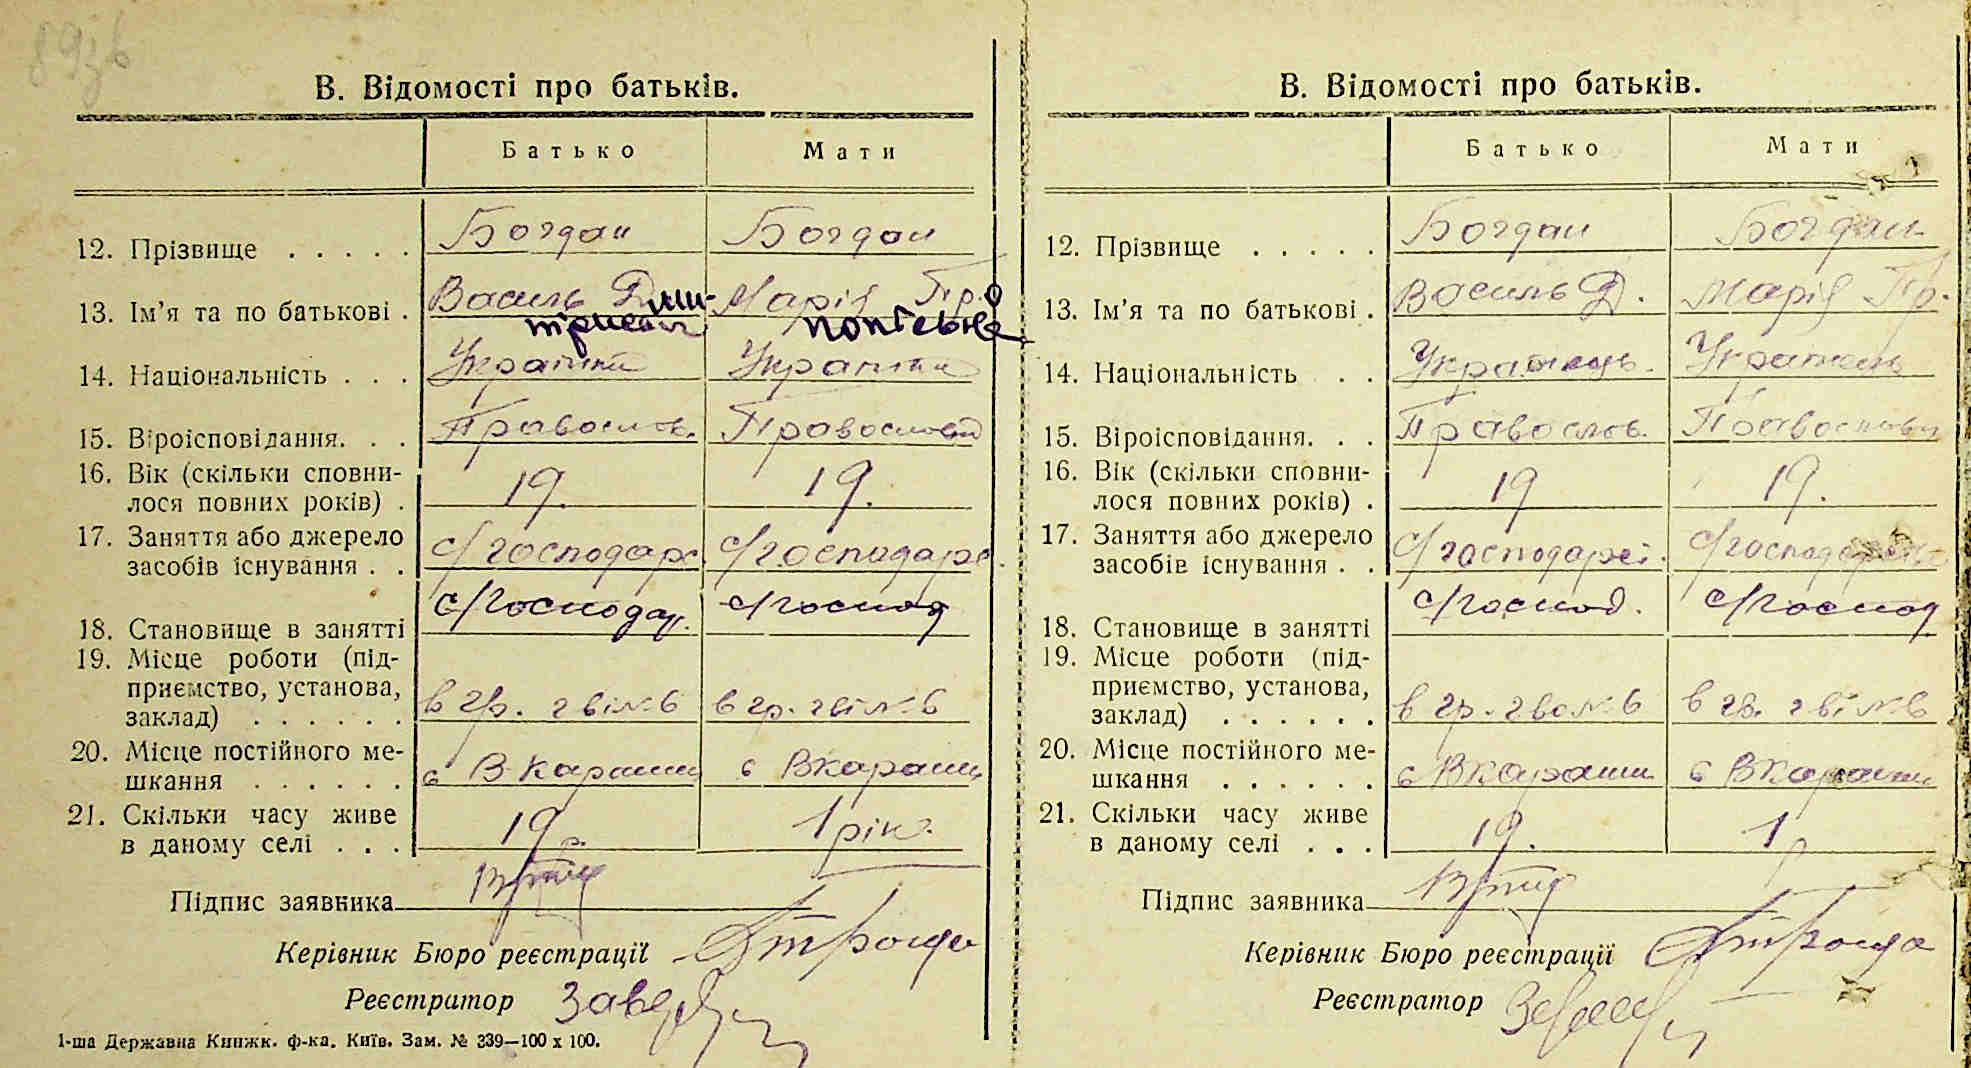 В. Відомості про батьків.
Батько Мати
12. Прізвище . . . . . Богдан Богдан
13. Ім'я та по батькові . Василь Дми- Марія Про
трієвич копієвна
14. Національність . . .
15. Віроісповідання. . . Правослов. Православ
16. Вік (скільки сповни-
лося повних років) . 19. 19.
17. Заняття або джерело
засобів існування . . с/господарс с/господарс
18. Становище в занятті с/господар. с/господ
19. Місце роботи (під-
приємство, установа,
заклад) . . . . . . в гр.
20. Місце постійного ме-
шкання . . . . . . с В-Караши с Вкараши
21. Скільки часу живе
в даному селі . . . 19 р. 1 рік.
Підпис заявника
Керівник Бюро реєстрації
Реєстратор
1-ша Державна Книжк. ф-ка. Київ. Зам. № 339—100 х 100.
В. Відомості про батьків.
Батько Мати
12. Прізвище . . . . . Богдан Богдан
13. Ім'я та по батькові . Василь Д. Марія Пр.
14. Національність . . Українець.
15. Віроісповідання. . . Правослов.
16. Вік (скільки сповни-
лося повних років) . 19 19.
17. Заняття або джерело
засобів існування . . с/господарсі.
18. Становище в занятті с/господ. с/господ
19. Місце роботи (під-
приємство, установа,
заклад) . . . . . . в гр.
20. Місце постійного ме-
шкання . . . . . . с Вкараши с Вкараши
21. Скільки часу живе
в даному селі . . . 19. 1 р
Підпис заявника
Керівник Бюро реєстрації
Реєстратор